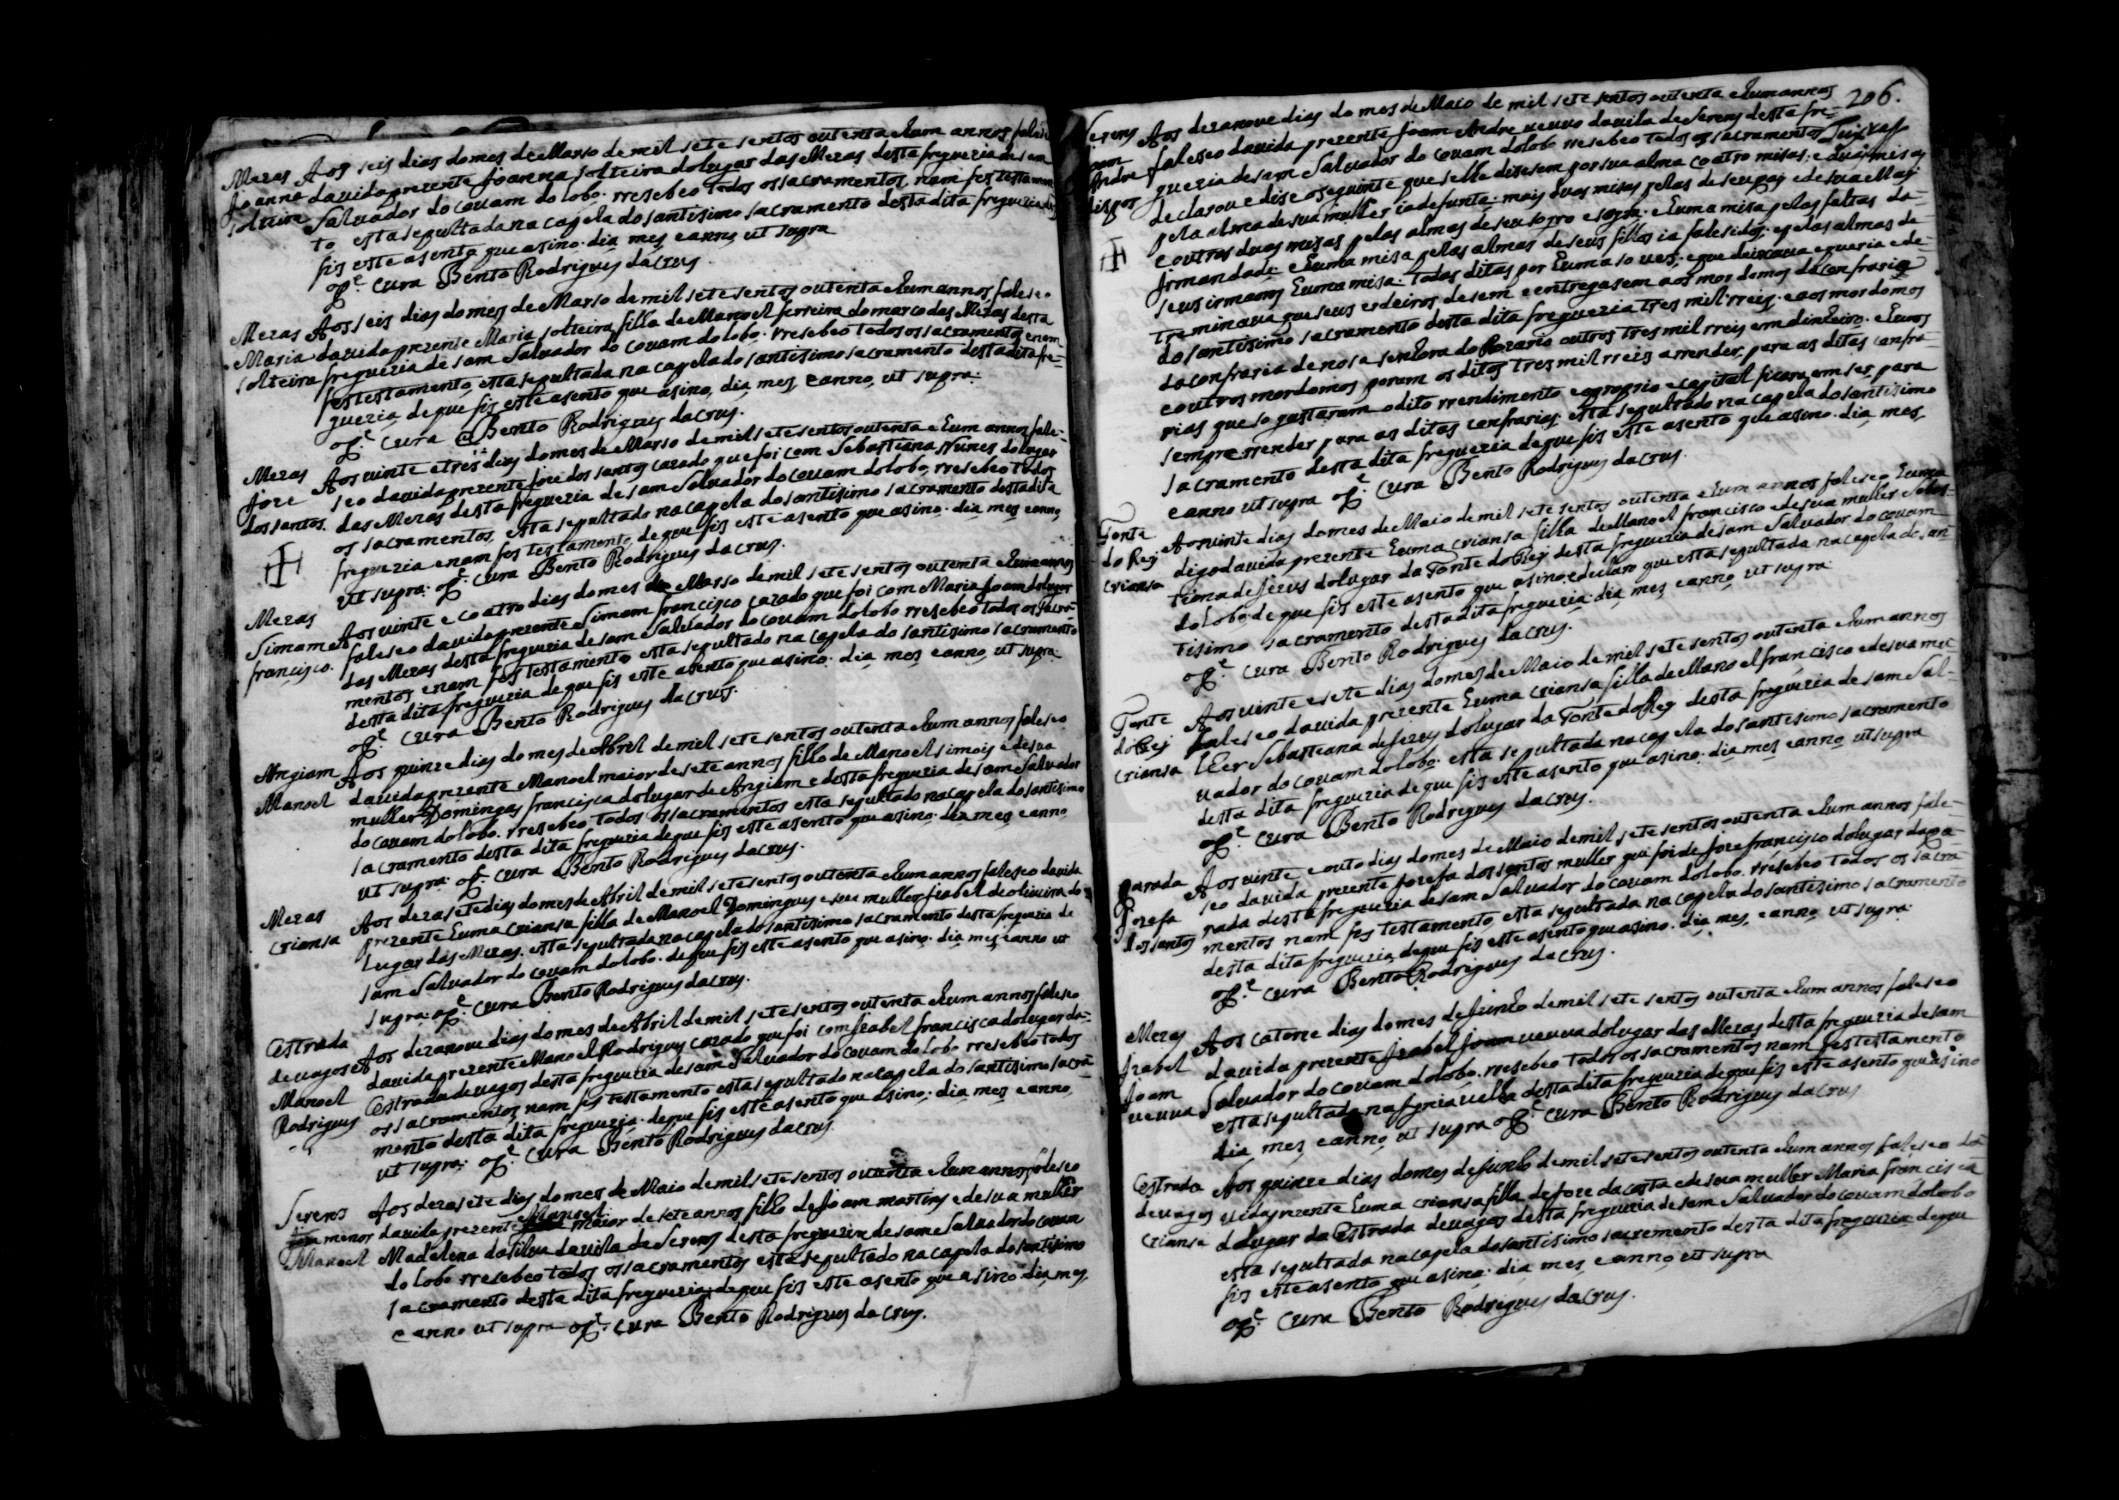 Mezas Aos seis dias do mes de Marso de mil sete sentos outenta e hum annos faleseo
Joanna da vida prezente Joanna solteira do lugar das Mezas desta freguezia de sam
solteira Salvador do covam do lobo. rresebeo todos os sacramentos, nam fes testamen
to esta sepultada na capela do santisimo sacramento desta dita freguezia de q
fis este asento que asino. dia mes e anno ut supra
o P.e Cura Bento Rodrigues da Crus.
Mezas Aos seis dias do mes de Marso de mil sete sentos outenta e hum annos, faleseo
Maria da vida prezente Maria solteira filha de Manoel ferreira do marco das Mezas desta
solteira freguezia de sam Salvador do covam do lobo. rresebeo todos os sacramentos e nam
fes testamento, esta sepultada na capela do santisimo sacramento desta dita fre=
guezia, de que fis este asento que asino, dia mes, e anno, ut supra:
o P.e Cura Bento Rodrigues da Crus.
Mezas Aos vinte e tres dias do mes de Marso de mil sete sentos outenta e hum annos fale=
Joze seo da vida prezente Joze dos santos cazado que foi com Sebastiana Nunes do lugar
dos santos. das Mezas desta freguezia de sam Salvador do covam do lobo, rresebeo todos
os sacramentos, esta sepultado na capela do santisimo sacramento desta dita
freguezia e nam fes testamento, de que fis este asento que asino. dia mes e anno,
ut supra: o P.e Cura Bento Rodrigues da Crus.
Mezas Aos vinte e coatro dias do mes de Marso de mil sete sentos outenta e hum annos
Simam faleseo da vida prezente Simam francisco cazado que foi com Maria Joam do lugar
francisco. das Mezas desta freguezia de sam Salvador do covam do lobo rresebeo todos os sacra=
mentos, e nam fes testamento esta sepultado na capela do santisimo sacramento
desta dita freguezia de que fis este asento que asino. dia mes e anno, ut supra:
o P.e Cura Bento Rodrigues da Crus.
Angiam Aos quinze dias do mes de Abril de mil sete sentos outenta e hum annos faleseo
Manoel da vida prezente Manoel maior de sete annos filho de Manoel simois e de sua
mulher Domingas francisca do lugar de Angiam e desta freguezia de sam Salvador
do covam do lobo. rresebeo todos os sacramentos esta sepultado na capela do santisimo
sacramento desta dita freguezia de que fis este asento que asino. dia mes e anno
ut supra: o P.e Cura Bento Rodrigues da Crus.
Mezas Aos dezasete dias do mes de Abril de mil sete sentos outenta e hum annos faleseo da vida
Criansa prezente huma criansa filha de Manoel Domingues e sua mulher Izabel de oliveira do
Lugar das Mezas, esta sepultada na capela do santisimo sacramento desta freguezia de
sam Salvador do covam do lobo. de que fis este asento que asino. dia mes e anno ut
supra: o P.e Cura Bento Rodrigues da Crus.
Estrada Aos dezanove dias do mes de Abril de mil sete sentos outenta e hum annos faleseo
de vagos da vida prezente Manoel Rodrigues cazado que foi com Izabel francisca do lugar da=
Manoel Estrada de vagos desta freguezia de sam Salvador do covam do lobo rresebeo todos
Rodrigues os sacramentos nam fes testamento esta sepultado na capela do santisimo sacra
mento desta dita freguezia. de que fis este asento que asino. dia mes e anno,
ut supra: o P.e Cura Bento Rodrigues da Crus
Serens Aos dezasete dias do mes de Maio de mil sete sentos outenta e hum annos, faleseo
Manoel
menor da vida prezente maior de sete annos filho de Joam martins e de sua mulher
Manoel Madalena da silva da vila de Serens desta freguezia de same Salvador do covam
do lobo rresebeo todos os sacramentos esta sepultado na capela do santisimo
sacramento desta dita freguezia: de que fis este asento que asino dia mes
e anno ut supra o P.e Cura Bento Rodrigues da Crus.
206.
Serens Aos dezanove dias do mes de Maio de mil sete sentos outenta e hum annos
Joam faleseo da vida prezente Joam Andre veuvo da vila de Serens desta fre=
Andre guezia de sam Salvador do covam do lobo rresebeo todos os sacramentos
dispos declarou e dise o seguinte que se lhe disesem por sua alma coatro misas: e duas misas
pela alma de sua mulher ia defunta: mais duas misas pelas de seu pai e de sua Mai
e outras duas misas pelas almas de seu sogro e sogra: e huma misa pelas faltas da=
Irmandade e huma misa pelas almas de seus filhos ia falesidos: e pelas almas de=
seus irmaons huma misa. todas ditas por huma so ves: e que deixava e queria e de=
treminava que seus erdeiros desem e entregasem aos mordomos da confraria
do santisimo sacramento desta dita freguezia tres mil rreis: e aos mordomos
da confraria de nosa senhora do Rozario outros tres mil rreis em dinheiro. e huns
e outros mordomos poram os ditos tres mil rreis a rrender, para as ditas confra=
rias que so gastaram o dito rrendimento e o proprio e capital ficara em ser para
sempre rrender para as ditas confrarias: esta sepultado na capela do santisimo
sacramento desta dita freguezia de que fis este asento que asino. dia mes,
e anno ut supra o P.e Cura Bento Rodrigues da Crus.
Fonte Aos vinte dias do mes de Maio de mil sete sentos outenta e hum annos faleseo huma
do Rei digo da vida prezente huma criansa filha de Manoel francisco e de sua mulher Sebas=
Criansa tiana de Jezus do lugar da Fonte do Rei desta freguezia de sam Salvador do covam
do Lobo de que fis este asento que asino e declaro que esta sepultada na capela do san
tisimo sacramento desta dita freguezia: dia mes e anno ut supra:
o P.e Cura Bento Rodrigues da Crus.
Fonte Aos vinte e sete dias do mes de Maio de mil sete sentos outenta e hum annos
do Rei faleseo da vida prezente huma criansa filha de Manoel francisco e de sua mu
Criansa lher Sebastiana de Jezus do lugar da Fonte do Rei desta freguezia de sam Sal=
vador do covam do lobo. esta sepultada na capela do santisimo sacramento
desta dita freguezia de que fis este asento que asino. dia mes e anno ut supra
o P.e Cura Bento Rodrigues da Crus.
parada Aos vinte e outo dias do mes de Maio de mil sete sentos outenta e hum annos fale=
Jozefa seo da vida prezente Jozefa dos santos mulher que foi de Joze francisco do lugar da pa=
dos santos rada desta freguezia de sam Salvador do covam do lobo. rresebeo todos os sacra
mentos nam fes testamento esta sepultada na capela do santisimo sacramento
desta dita freguezia, de que fis este asento que asino. dia mes, e anno, ut supra:
o P.e Cura Bento Rodrigues da Crus.
Mezas Aos catorze dias do mes de Junho de mil sete sentos outenta e hum annos faleseo
Izabel da vida prezente Izabel Joam veuva do lugar das Mezas desta freguezia de sam
Joam Salvador do covam do lobo. rresebeo todos os sacramentos nam fes testamento
veuva esta sepultada na Igreia velha desta dita freguezia de que fis este asento que asino
dia mes e anno ut supra o P.e Cura Bento Rodrigues da Crus
Estrada Aos quinze dias do mes de Junho de mil sete sentos outenta e hum annos faleseo da
de vagos vida prezente huma criansa filha de Joze da costa e de sua mulher Maria francisca
Criansa do lugar da Estrada de vagos desta freguezia de sam Salvador do covam do lobo
esta sepultada na capela do santisimo sacremento desta dita freguezia de que
fis este asento que asino: dia mes e anno ut supra
o P.e Cura Bento Rodrigues da Crus.